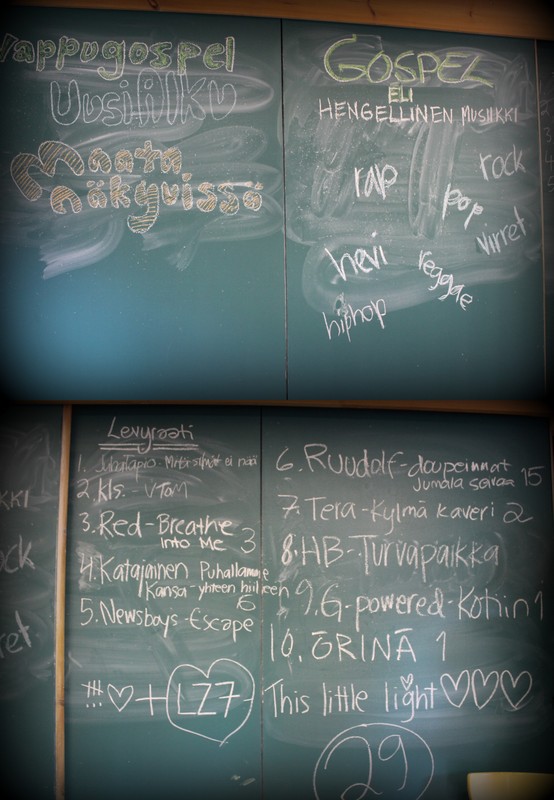 Vappugospel
Uusi Alku
Maata
näkyvissä
GOSPEL
ELI
HENGELLINEN MUSIIKKI
rap
rock
pop
virret
hevi
reggae
hiphop
Levyraati
1. Juha Tapio - Mitä silmät ei nää
2. Kls. - VTOM
3. Red - Breathe
into Me 3
4. Katajainen Puhallamme
Kansa - yhteen hiileen
6
5. Newsboys - Escape
!!! ♡ + LZ7 -
6. Ruudolf - doupeimmat
Jumala seivaa 15
7. Tera - Kylmä kaveri 2
8. HB - Turvapaikka
9. G-powered - Kotiin 1
10. ÖRINÄ 1
This little light ♡♡♡
29
KKI
ock
ret